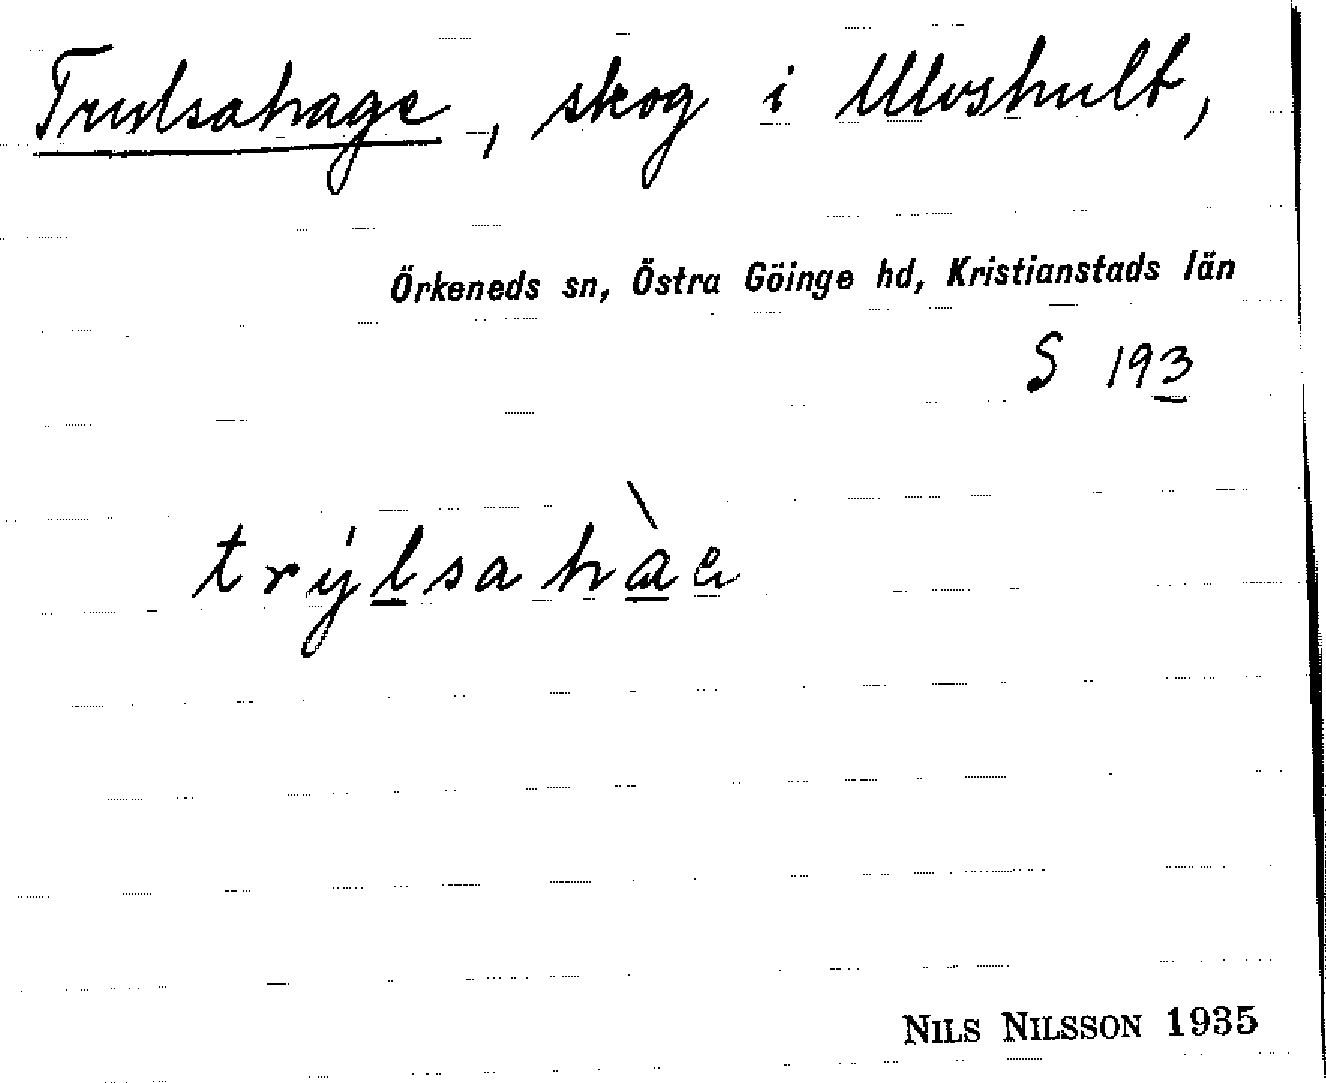 Trulsahage, skog i Ulvshult,
Örkeneds sn, Östra Göinge hd, Kristianstads län
S 193
trýlsahàe
NILS NILSSON 1935